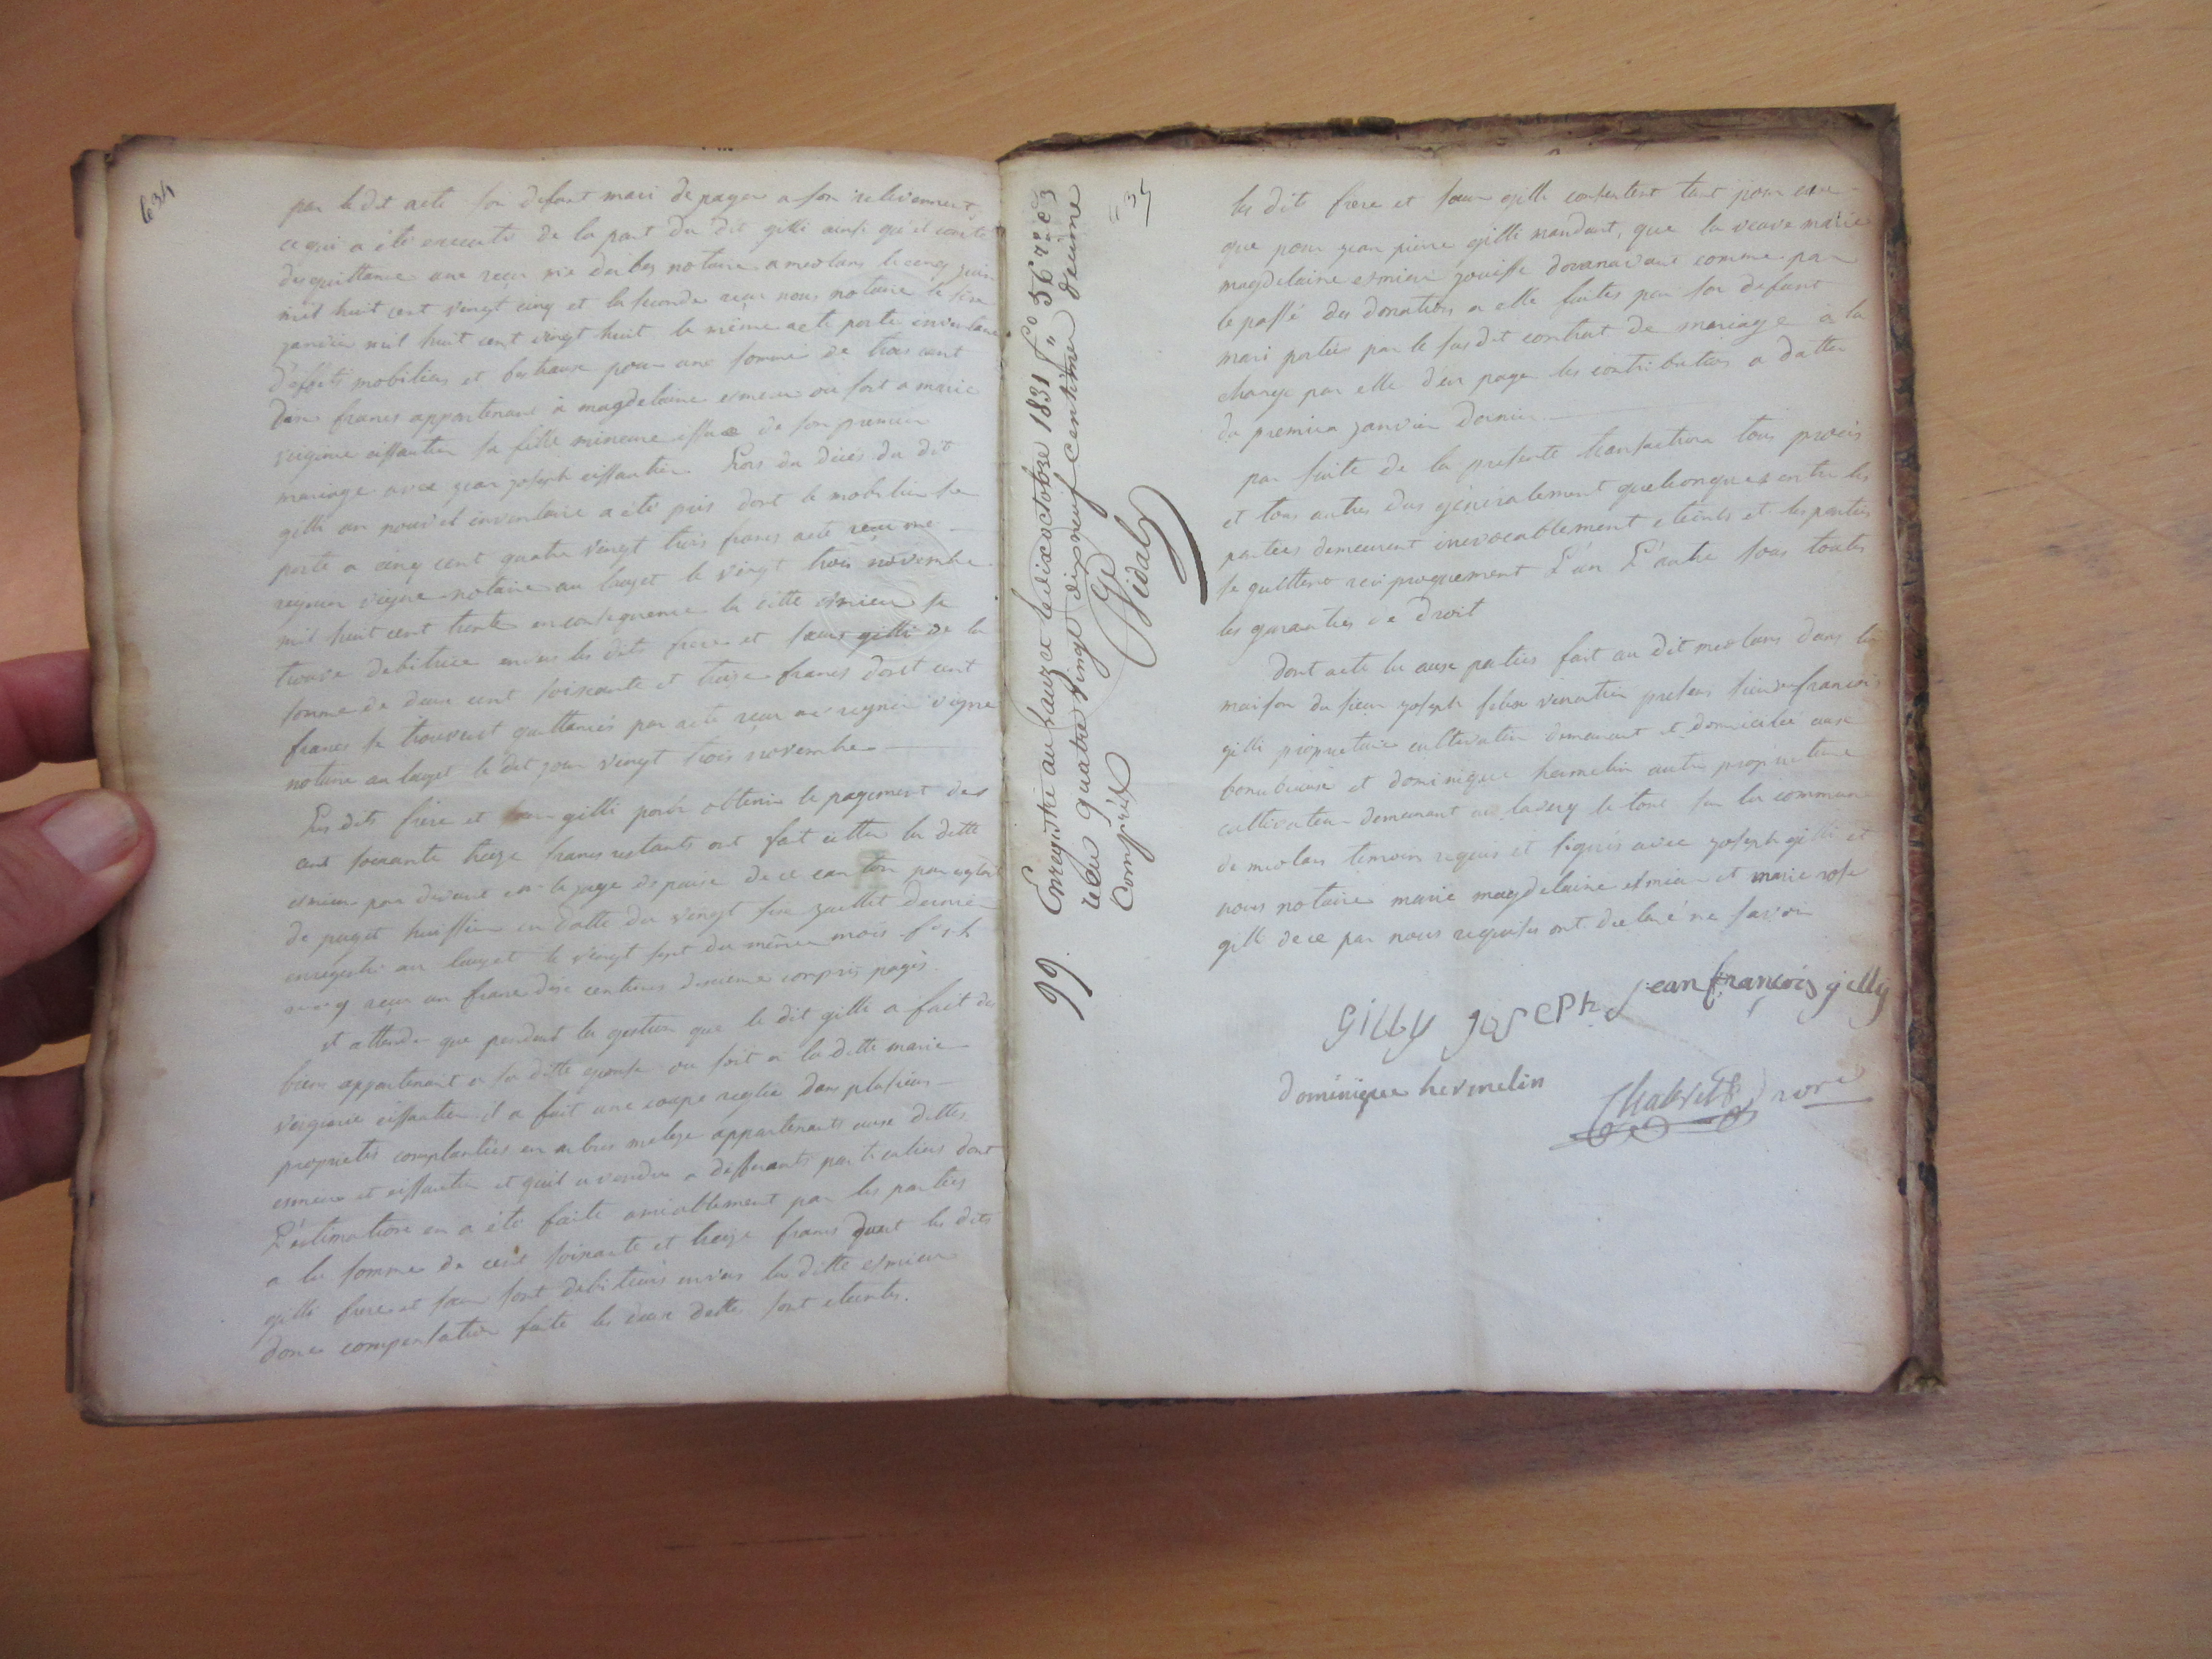 634
par le dit acte son defunt mari de payer a son relevement
ce qui a été executé de la part du dit gilli ainsi qu'il conste
des quittances une reçue me notaire a meolans le cinq juin
mil huit cent vingt cinq et la seconde reçue nous notaire le six
janvier mil huit cent vingt huit le même acte porte inventaire
d'effets mobiliers et bestiaux pour une somme de trois cent
dix francs appartenant à magdelaine esmieu ou soit a marie
virginie eissautier sa fille mineure issue de son premier
mariage avec jean joseph eissautier. Lors du décès du dit
gilli un nouvel inventaire a été pris dont le mobilier se
porte a cinq cent quatre vingt trois francs acte reçu me
reynier vigne notaire au lauzet le vingt trois novembre
mil huit cent trente en consequence la ditte esmieu se
trouve debitrice envers les dits frere et sœur gilli de la
somme de deux cent soixante et treize francs dont cent
francs se trouvent quittancés par acte reçu me reynier vigne
notaire au lauzet le dit jour vingt trois novembre
Les dits frère et sœur gilli pour obtenir le payement des
cent soixante treize francs restants ont fait citter la ditte
esmieu par devant le juge de paix de ce canton par exploit
de puget huissier en datte du vingt six juillet dernier
enregistré au lauzet le vingt sept du même mois
reçu un franc dix centimes decime compris payés.
et attendu que pendant la gestion que le dit gilli a fait des
biens appartenant a sa ditte epouse ou soit a la ditte marie
virginie eissautier il a fait une coupe reglée dans plusieurs
proprietés complantées en arbres meleze appartenants aux dittes
esmieu et eissautier et qu'il a vendu a differants particuliers dont
L'estimation en a été faite amiablement par les parties
a la somme de cent soixante et treize francs dont les dits
gilli frere et sœur sont debiteurs envers la ditte esmieu
donc compensation faite les deux dettes sont eteintes.
99. Enregistré au Lauzet le dix octobre 1831 f° 56 r° c 3
reçu quatre vingt dix neuf centimes decime
Compris
Vidal
les dits frere et sœur gilli consentent tant pour eux
que pour jean pierre gilli mandant, que la veuve marie
magdelaine esmieu jouisse doranavant comme par
le passé des donations a elle faites par son defunt
mari portées par le susdit contrat de mariage à la
charge par elle d'en payer les contributions a datter
du premier janvier dernier.
par suite de la presente transaction tous procès
et tous autres dus généralement quelconques entre les
parties demeurent irrevocablement eteints et les parties
se quittent reciproquement L'un L'autre sous toutes
les garanties de droit
Dont acte lu aux parties fait au dit meolans dans la
maison du sieur joseph felix presens sieurs francois
gilli proprietaire cultivateur demeurant et domicilié aux
et dominique hermelin autre proprietaire
cultivateur demeurant au le tout sur la commune
de meolans temoins requis et signés avec joseph gilli et
nous notaire marie magdelaine esmieu et marie rose
gilli de ce par nous requises ont declaré ne savoir
GILLY JOSEPh jean françois gilly
dominique hermelin